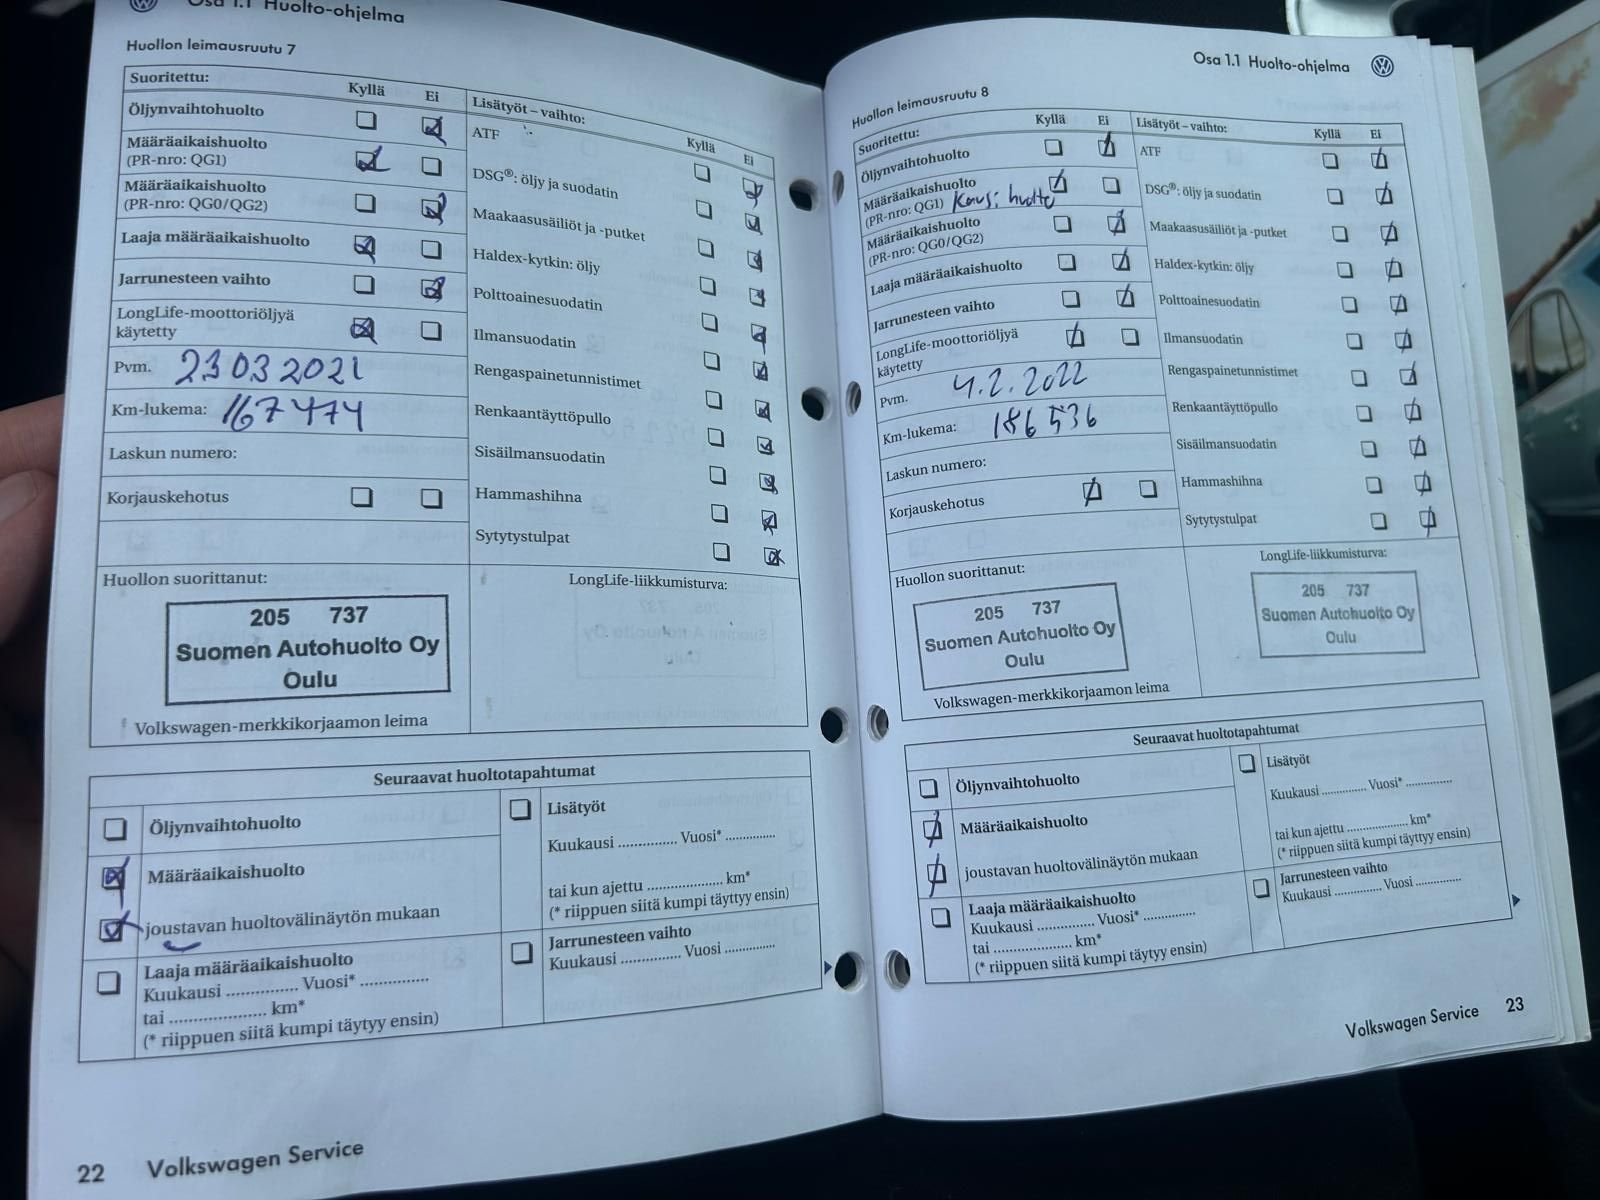 Osa 1.1 Huolto-ohjelma
Huollon leimausruutu 7
Suoritettu:
Kyllä Ei
Öljynvaihtohuolto
Määräaikaishuolto
(PR-nro: QG1)
Määräaikaishuolto
(PR-nro: QG0/QG2)
Laaja määräaikaishuolto
Jarrunesteen vaihto
LongLife-moottoriöljyä
käytetty
Pvm. 23 03 2021
Km-lukema: 167 474
Laskun numero:
Korjauskehotus
Lisätyöt – vaihto:
Kyllä Ei
ATF
DSG®: öljy ja suodatin
Maakaasusäiliöt ja -putket
Haldex-kytkin: öljy
Polttoainesuodatin
Ilmansuodatin
Rengaspainetunnistimet
Renkaantäyttöpullo
Sisäilmansuodatin
Hammashihna
Sytytystulpat
Huollon suorittanut:
205 737
Suomen Autohuolto Oy
Oulu
Volkswagen-merkkikorjaamon leima
LongLife-liikkumisturva:
Seuraavat huoltotapahtumat
Öljynvaihtohuolto
Määräaikaishuolto
joustavan huoltovälinäytön mukaan
Laaja määräaikaishuolto
Kuukausi ............... Vuosi* ..............
tai .................... km*
(* riippuen siitä kumpi täytyy ensin)
Lisätyöt
Kuukausi ............... Vuosi* ...............
tai kun ajettu ...................... km*
(* riippuen siitä kumpi täyttyy ensin)
Jarrunesteen vaihto
Kuukausi ............... Vuosi ...............
22 Volkswagen Service
Osa 1.1 Huolto-ohjelma
Huollon leimausruutu 8
Suoritettu:
Kyllä Ei
Öljynvaihtohuolto
Määräaikaishuolto
(PR-nro: QG1) Kausi huolto
Määräaikaishuolto
(PR-nro: QG0/QG2)
Laaja määräaikaishuolto
Jarrunesteen vaihto
LongLife-moottoriöljyä
käytetty
Pvm. 4.2.2022
Km-lukema: 186 536
Laskun numero:
Korjauskehotus
Lisätyöt – vaihto:
Kyllä Ei
ATF
DSG®: öljy ja suodatin
Maakaasusäiliöt ja -putket
Haldex-kytkin: öljy
Polttoainesuodatin
Ilmansuodatin
Rengaspainetunnistimet
Renkaantäyttöpullo
Sisäilmansuodatin
Hammashihna
Sytytystulpat
Huollon suorittanut:
205 737
Suomen Autohuolto Oy
Oulu
Volkswagen-merkkikorjaamon leima
LongLife-liikkumisturva:
205 737
Suomen Autohuolto Oy
Oulu
Seuraavat huoltotapahtumat
Öljynvaihtohuolto
Määräaikaishuolto
joustavan huoltovälinäytön mukaan
Laaja määräaikaishuolto
Kuukausi ............... Vuosi* ...............
tai .................... km*
(* riippuen siitä kumpi täytyy ensin)
Lisätyöt
Kuukausi ............... Vuosi* ...............
tai kun ajettu .................... km*
(* riippuen siitä kumpi täyttyy ensin)
Jarrunesteen vaihto
Kuukausi ............... Vuosi ...............
Volkswagen Service 23